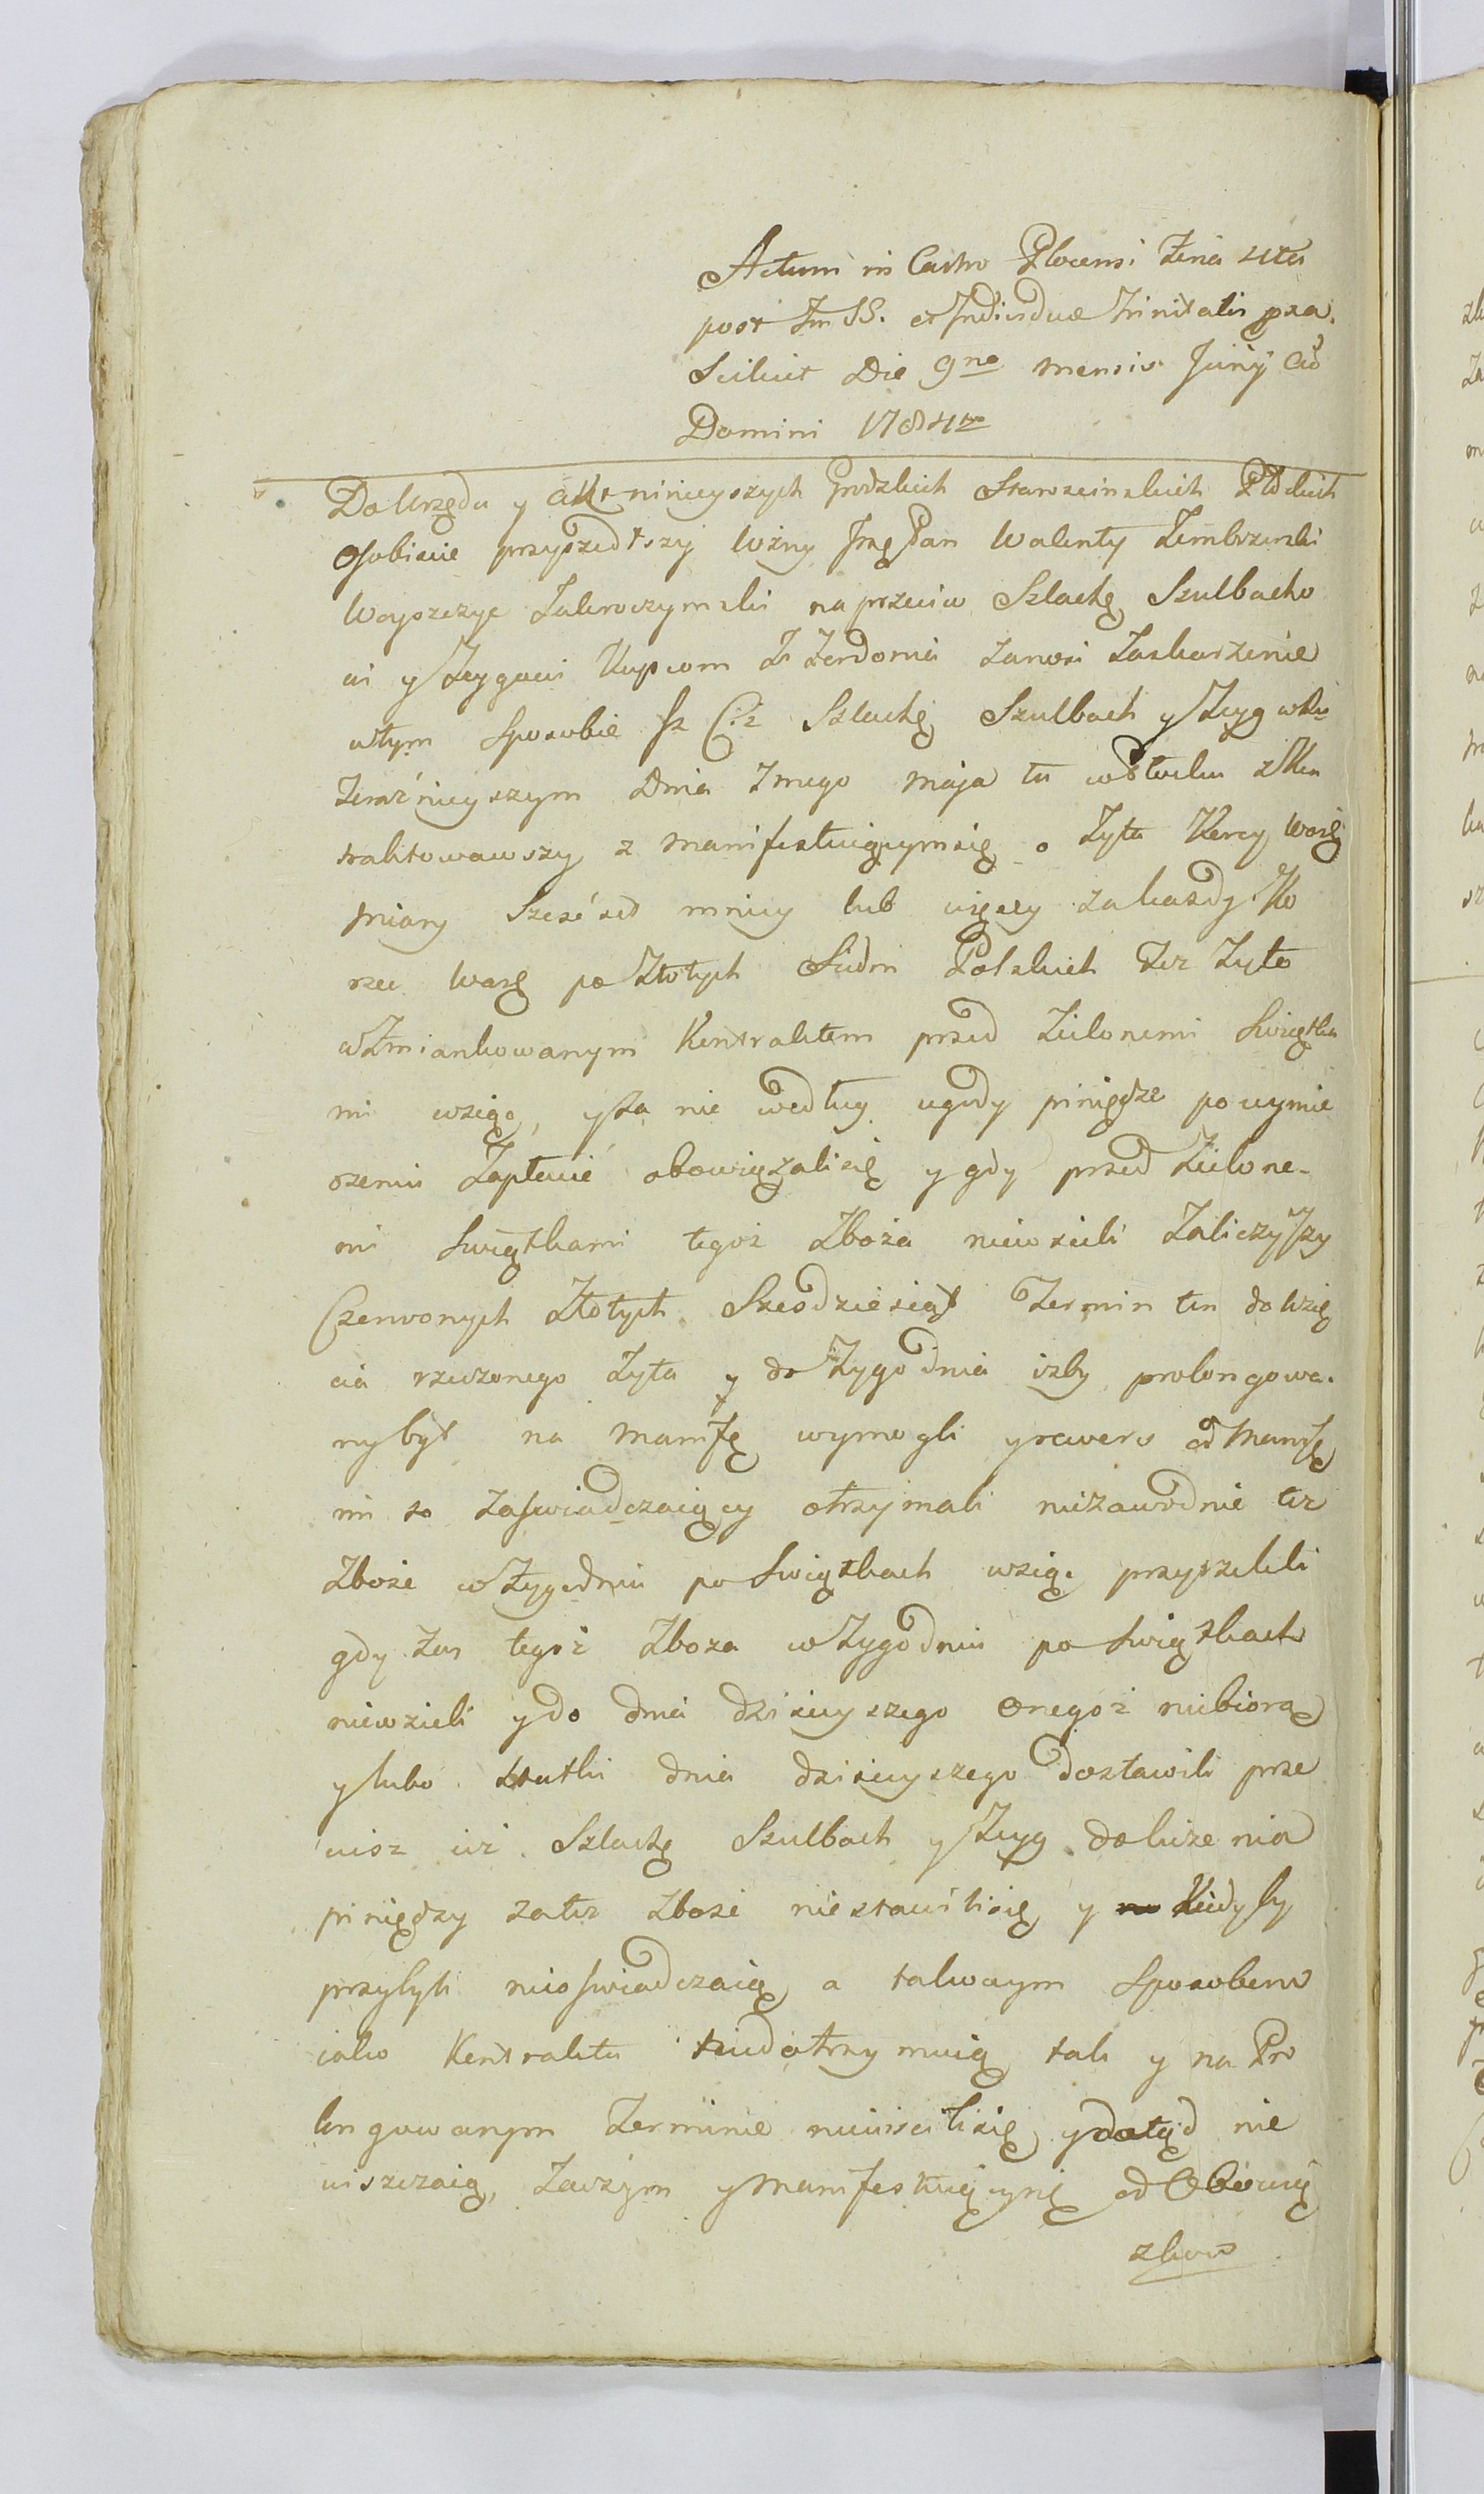 Actum in Castro Plocensi Feria 4ta
post Fm SS. et Individuæ Trinitatis pxa.
Scilicet Die 9na mensis Junÿ Ao
Domini 1784to
Do Urzędu y Akt ninieyszych Grodzkich Starościnskich Płdckich
osobiscie przyszedłszy Wżny Jmę Pan Walenty Zembrzuski
Woyszczyc Zakroczymski naprzeciw Szlachę Szulbacho
wi y Zygowi Kupcom z Zerdomia zanosi Zaskarzenie
wtym sposobie Jz Ciż Szlachę Szulbach y Zeyg wRo
Teraźnieyszym Dnia 7mego Maja tu w Płocku zKon
traktowawszy z manifestuiącymsię o Zyta Korcy Warsz
miary Sześćset mniey lub więcey zakazdy Ko
rzec Warsz po Złotych Siedm Polskich Też Zyto
wZmiankowanym Kontraktem przed Zielonemi Swiątka
mi wziąć, y za nie według ugody pieniądze po wymie
rzeniu Zapłacić obowiązalisię y gdy przed Zielone-
mi Swiątkami tegoż Zboża niewzieli Zaliczywszy
Czerwonych Złotych Sześdziesiąt Termin ten do Wzię
cia rzeczonego Zyta y do Tygodnia izby prolongowa.
ny był na Manifę wymogli y rewers od Manifę
mi to zaswiadczaiący otrzymali niezawodnie też
Zboże wTygodniu po Swiątkach wziąć przyrzekli
gdy zas tegoż Zboza wTygodniu po Swiątkach
niewzieli y do dnia dzisieyszego onegoż niebiorą
y lubo Statki dnia dzisieyszego dostawili prze
cież iż Szlachę Szulbach y Zeyg doliczenia
pieniędzy zatez Zboże niestawilisię y Kiedyby
przybyli nieoswiadczaią a takowym sposobem
iako Kontraktu niedotrzymuią tak y na Pro
longowanym Terminie nieuiscilisię y dotąd nie
uiszczaią, Zaczym y Manifestuiącysię od Obiorcy
zkow